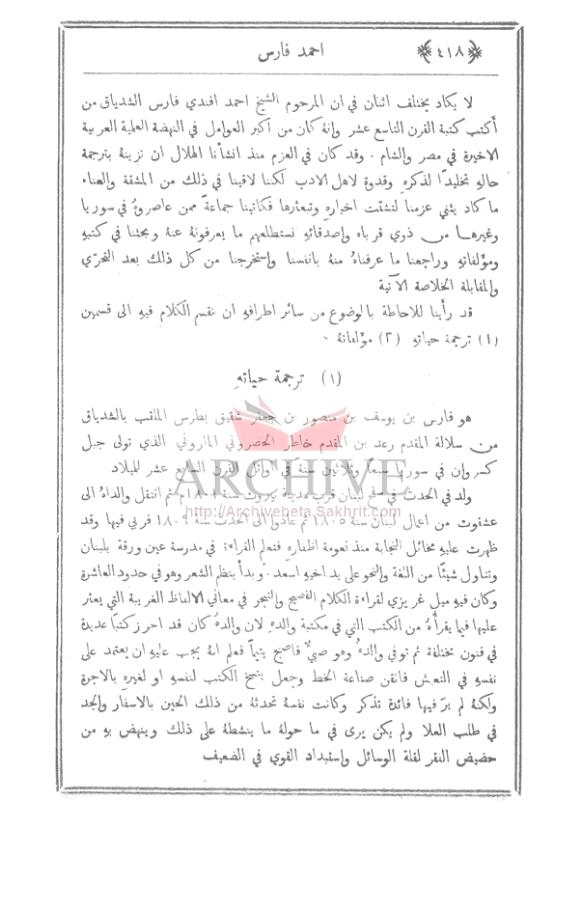 ﴿٤١٨﴾ احمد فارس
لا يكاد يختلف اثنان في ان المرحوم الشيخ احمد افندي فارس الشدياق من
أكتب كتبة القرن التاسع عشر وانهُ كان من اكبر العوامل في النهضة العلمية العربية
الاخيرة في مصر والشام . وقد كان في العزم منذ انشأنا الهلال ان نزينهُ بترجمة
حالهِ تخليدًا لذكرهِ وقدوة لاهل الادب لكننا لاقينا في ذلك من المشقة والعناء
ما كاد يثني عزمنا لتشتت اخبارهِ وتبعثرها فكاتبنا جماعةً ممن عاصروهُ في سوريا
وغيرها من ذوي قرباه واصدقائهِ نستطلعهم ما يعرفونهُ عنهُ وبحثنا في كتبهِ
ومؤلفاتهِ وراجعنا ما عرفناهُ منهُ بانفسنا واستخرجنا من كل ذلك بعد التحرّي
والمقابلة الخلاصة الآتية
قد رأينا للاحاطة بالموضوع من سائر اطرافهِ ان نقسم الكلام فيهِ الى قسمين
(١) ترجمة حياتهِ (٢) مؤلفاتهُ .
(١) ترجمة حياتهِ
هو فارس بن يوسف بن منصور بن جعفر شقيق بطرس الملقب بالشدياق
من سلالة المقدم رعد بن المقدم خاطر الحصروني الماروني الذي تولى جبل
كسروان في سوريا سبعًا وثلاثين سنة في اوائل القرن السابع عشر للميلاد
ARCHIVE
ولد في الحدث في لبنان قرب مدينة بيروت سنة ١٨٠٤م ثم انتقل والداهُ الى
http://Archivebeta.Sakhrit.com
عشقوت من اعمال لبنان سنة ١٨٠٥ ثم عادوا الى الحدث سنة ١٨٠٩ فربي فيها وقد
ظهرت عليهِ مخائل النجابة منذ نعومة اظفارهِ فتعلم القراءة في مدرسة عين ورقة بلبنان
وتناول شيئًا من اللغة والنحو على يد اخيهِ اسعد . وبدأ بنظم الشعر وهو في حدود العاشرة
وكان فيهِ ميل غريزي لقراءة الكلام الفصيح والتبحر في معاني الالفاظ الغريبة التي يعثر
عليها فيما يقرأهُ من الكتب التي في مكتبة والدهِ لان والدهُ كان قد احرز كتبًا عديدة
في فنون مختلفة ثم توفي والدهُ وهو صبيٌّ فاصبح يتيمًا فعلم انهُ يجب عليهِ ان يعتمد على
نفسهِ في التعيش فاتقن صناعة الخط وجعل ينسخ الكتب لنفسهِ او لغيرهِ بالاجرة
ولكنهُ لم يرَ فيها فائدة تذكر وكانت نفسهُ تحدثهُ من ذلك الحين بالاسفار والجد
في طلب العلا ولم يكن يرى في ما حولهُ ما ينشطهُ على ذلك وينهض بهِ من
حضيض الفقر لقلة الوسائل واستبداد القوي في الضعيف